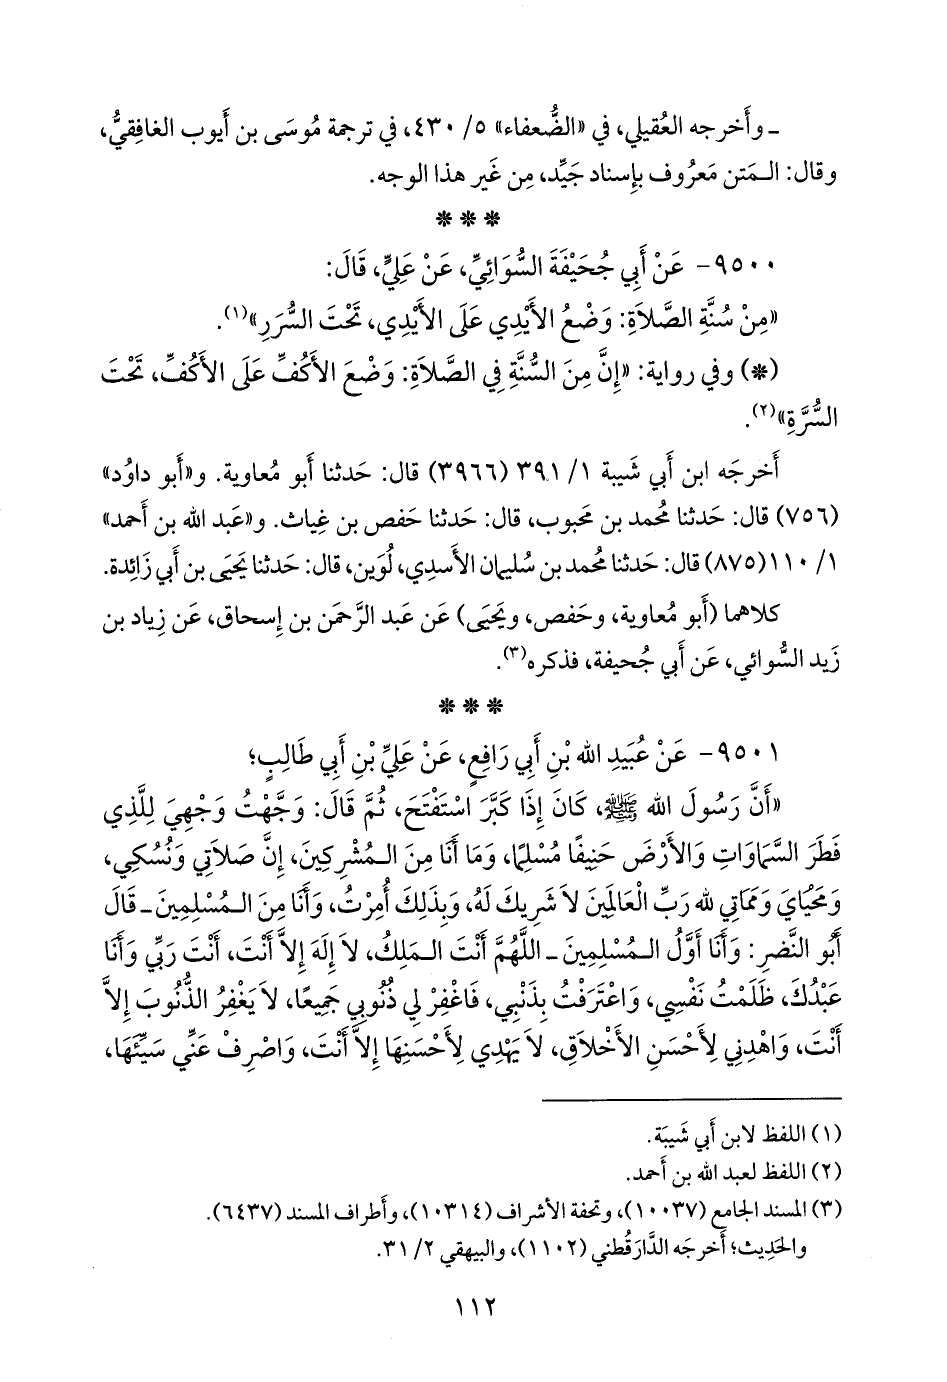 ـ وأَخرجه العُقيلي، في «الضُّعفاء» ٥/ ٤٣٠، في ترجمة مُوسَى بن أَيوب الغافِقيُّ،
وقال: الـمَتن مَعرُوف بإِسناد جَيِّد، مِن غَير هذا الوجه.
* * *
٩٥٠٠- عَنْ أَبِي جُحَيْفَةَ السُّوَائِيِّ، عَنْ عَلِيٍّ، قَالَ:
«مِنْ سُنَّةِ الصَّلاَةِ: وَضْعُ الأَيْدِي عَلَى الأَيْدِي، تَحْتَ السُّرَرِ»(١).
(*) وفي رواية: «إِنَّ مِنَ السُّنَّةِ فِي الصَّلاَةِ: وَضْعَ الأَكُفِّ عَلَى الأَكُفِّ، تَحْتَ
السُّرَّةِ»(٢).
أَخرجَه ابن أَبي شَيبة ١/ ٣٩١ (٣٩٦٦) قال: حَدثنا أَبو مُعاوية. و«أَبو داوُد»
(٧٥٦) قال: حَدثنا مُحمد بن مَحبوب، قال: حَدثنا حَفص بن غِياث. و«عَبد الله بن أَحمد»
١/ ١١٠(٨٧٥) قال: حَدثنا مُحمد بن سُليمان الأَسدِي، لُوَين، قال: حَدثنا يَحيَى بن أَبي زَائِدة.
كلاهما (أَبو مُعاوية، وحَفص، ويَحيَى) عَن عَبد الرَّحمَن بن إِسحاق، عَن زِياد بن
زَيد السُّوائي، عَن أَبي جُحيفة، فذكره(٣).
* * *
٩٥٠١- عَنْ عُبَيدِ الله بْنِ أَبِي رَافِعٍ، عَنْ عَلِيِّ بْنِ أَبِي طَالِبٍ؛
«أَنَّ رَسُولَ الله ﷺ، كَانَ إِذَا كَبَّرَ اسْتَفْتَحَ، ثُمَّ قَالَ: وَجَّهْتُ وَجْهِيَ لِلَّذِي
فَطَرَ السَّمَاوَاتِ وَالأَرْضَ حَنِيفًا مُسْلِمًا، وَمَا أَنَا مِنَ الـمُشْرِكِينَ، إِنَّ صَلاَتِي وَنُسُكِي،
وَمَحْيَايَ وَمَمَاتِي لله رَبِّ الْعَالَمِينَ لاَ شَرِيكَ لَهُ، وَبِذَلِكَ أُمِرْتُ، وَأَنَا مِنَ الـمُسْلِمِينَ ـ قَالَ
أَبُو النَّضرِ: وَأَنَا أَوَّلُ الـمُسْلِمِينَ ـ اللَّهُمَّ أَنْتَ الـمَلِكُ، لاَ إِلَهَ إِلاَّ أَنْتَ، أَنْتَ رَبِّي وَأَنَا
عَبْدُكَ، ظَلَمْتُ نَفْسِي، وَاعْتَرَفْتُ بِذَنْبِي، فَاغْفِرْ لِي ذُنُوبِي جَمِيعًا، لاَ يَغْفِرُ الذُّنُوبَ إِلاَّ
أَنْتَ، وَاهْدِنِي لِأَحْسَنِ الأَخْلاَقِ، لاَ يَهْدِي لِأَحْسَنِهَا إِلاَّ أَنْتَ، وَاصْرِفْ عَنِّي سَيِّئَهَا،
(١) اللفظ لابن أَبي شَيبَة.
(٢) اللفظ لعبد الله بن أَحمد.
(٣) المسند الجامع (١٠٠٣٧)، وتحفة الأَشراف (١٠٣١٤)، وأَطراف المسند (٦٤٣٧).
والحَدِيث؛ أَخرجَه الدَّارَقُطني (١١٠٢)، والبيهقي ٢/ ٣١.
١١٢